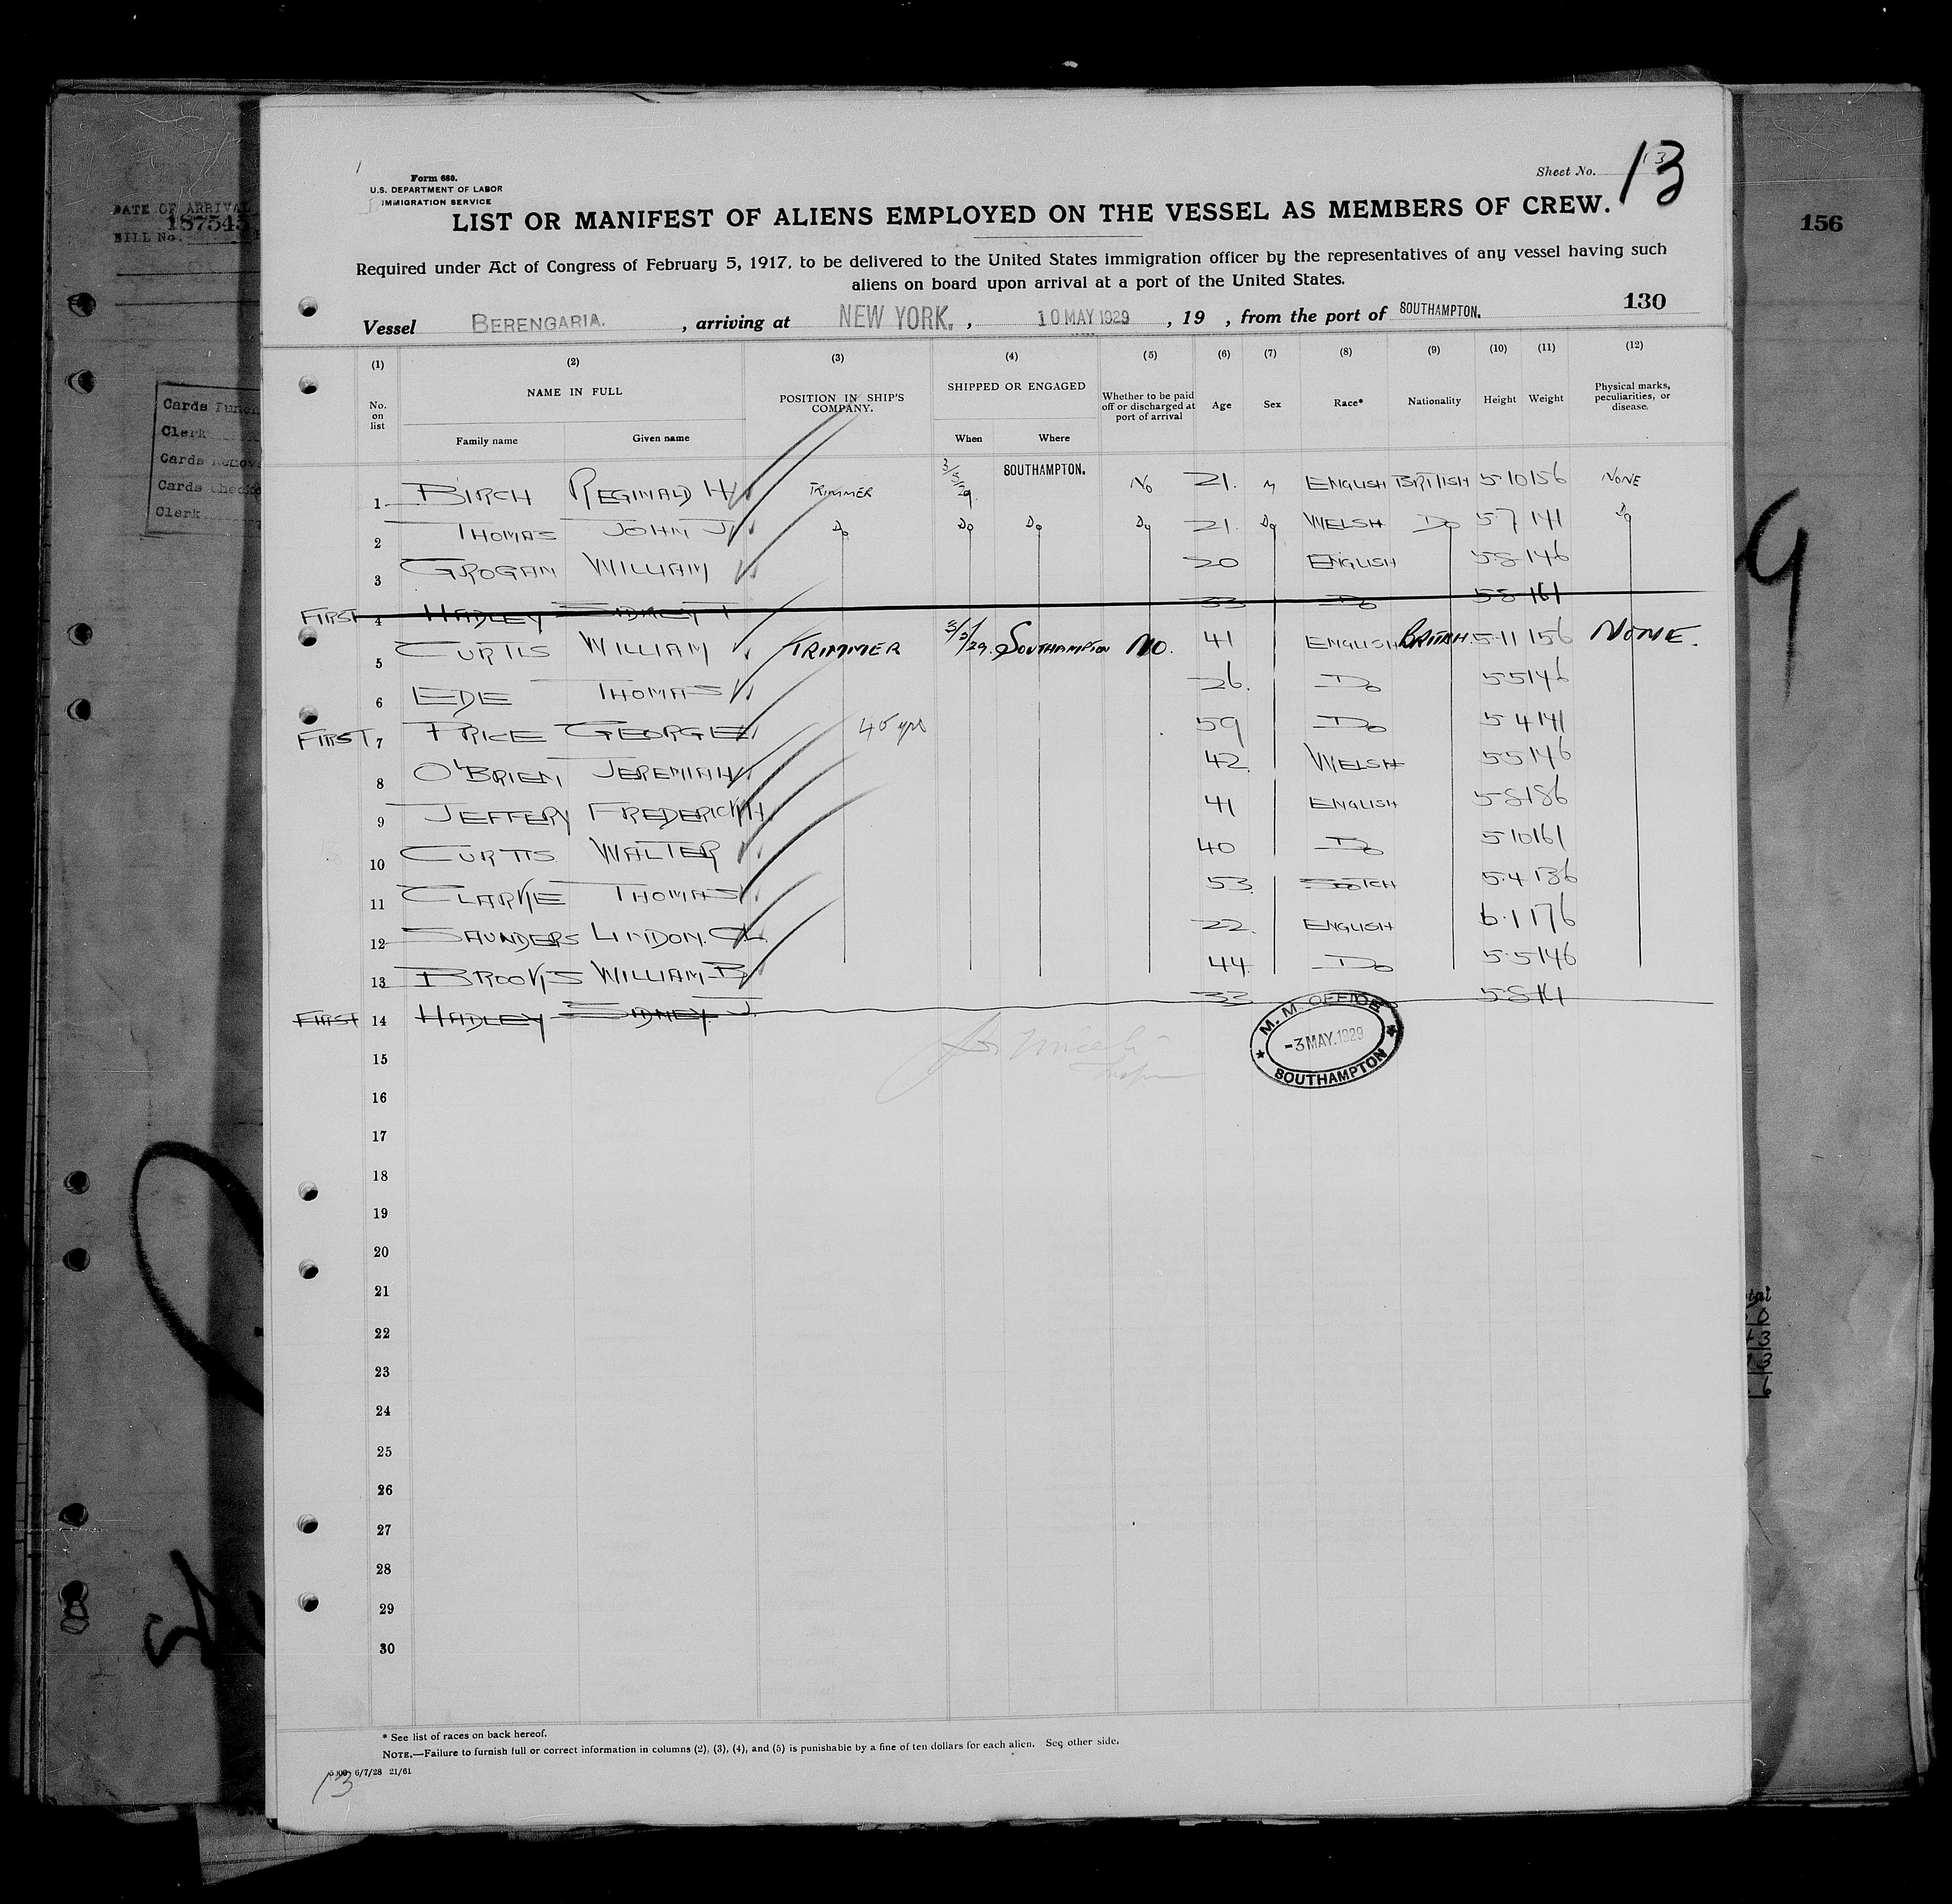 13
Sheet No. 13
Form 680.
U.S. DEPARTMENT OF LABOR
IMMIGRATION SERVICE
LIST OR MANIFEST OF ALIENS EMPLOYED ON THE VESSEL AS MEMBERS OF CREW.
Required under Act of Congress of February 5, 1917, to be delivered to the United States immigration officer by the representatives of any vessel having such
aliens on board upon arrival at a port of the United States.
130
Vessel BERENGARIA. , arriving at NEW YORK. , 10 MAY 1929 , 19 , from the port of SOUTHAMPTON.
DATE OF ARRIVAL
187545
BILL No.
156
Cards
Clerk
Cards
Cards
Clerk
(1) (2) (3) (4) (5) (6) (7) (8) (9) (10) (11) (12)
No. on list NAME IN FULL POSITION IN SHIP'S COMPANY. SHIPPED OR ENGAGED Whether to be paid off or discharged at port of arrival Age Sex Race* Nationality Height Weight Physical marks, peculiarities, or disease.
Family name Given name When Where
1 BIRCH REGINALD H TRIMMER 3/5/29. SOUTHAMPTON. No 21. M ENGLISH BRITISH 5-10 156 NONE
2 THOMAS JOHN J Do Do Do Do 21. Do WELSH Do 5-7 141 Do
3 GROGAN WILLIAM 20 ENGLISH 5-8 146
FIRST 4 HADLEY SIDNEY J 33 Do 5-8 161
5 CURTIS WILLIAM TRIMMER 3/5/29. SOUTHAMPTON NO. 41 ENGLISH BRITISH. 5-11 156 NONE.
6 EDE THOMAS 26. Do 5-5 146
FIRST 7 PRICE GEORGE 45 yrs 59 Do 5-4 141
8 O'BRIEN JEREMIAH 42 WELSH 5-5 146
9 JEFFERY FREDERICK H. 41 ENGLISH 5-8 186
10 CURTIS WALTER 40 Do 5-10 161
11 CLARKE THOMAS 53 SCOTCH 5-4 136
12 SAUNDERS LINDON. 22. ENGLISH 6-1 176
13 BROOKS WILLIAM B 44 Do 5-5 146
FIRST 14 HADLEY SIDNEY J. 33 5-8 161
M. M. OFFICE
-3 MAY. 1929
SOUTHAMPTON
15
16
17
18
19
20
21
22
23
24
25
26
27
28
29
30
* See list of races on back hereof.
NOTE.—Failure to furnish full or correct information in columns (2), (3), (4), and (5) is punishable by a fine of ten dollars for each alien. See other side.
6/7/28 21/61
13